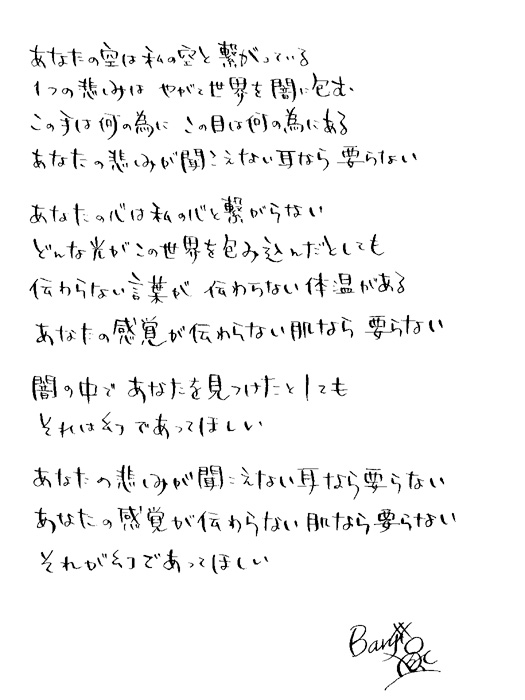 あなたの空は私の空と繋がっている
1つの悲しみは やがて世界を闇に包む
この手は何の為に この目は何の為にある
あなたの悲しみが聞こえない耳なら 要らない
あなたの心は私の心と繋がらない
どんな光がこの世界を包み込んだとしても
伝わらない言葉が 伝わらない体温がある
あなたの感覚が伝わらない肌なら 要らない
闇の中で あなたを見つけたとしても
それは幻であってほしい
あなたの悲しみが聞こえない耳なら要らない
あなたの感覚が伝わらない肌なら要らない
それが幻であってほしい